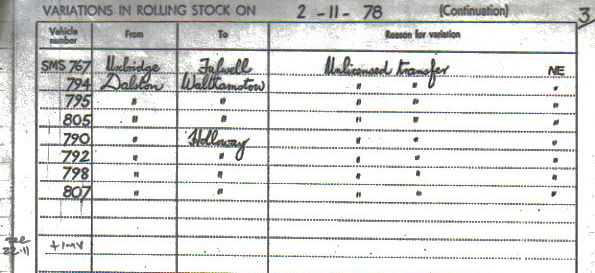 VARIATIONS IN ROLLING STOCK ON 2-11-78 (Continuation) 3
Vehicle number From To Reason for variation
SMS 767 Uxbridge Fulwell Unlicensed transfer NE
794 Dalston Walthamstow " " "
795 " " " " "
805 " " " " "
790 " Holloway " " "
792 " " " " "
798 " " " " "
807 " " " " "
22.11